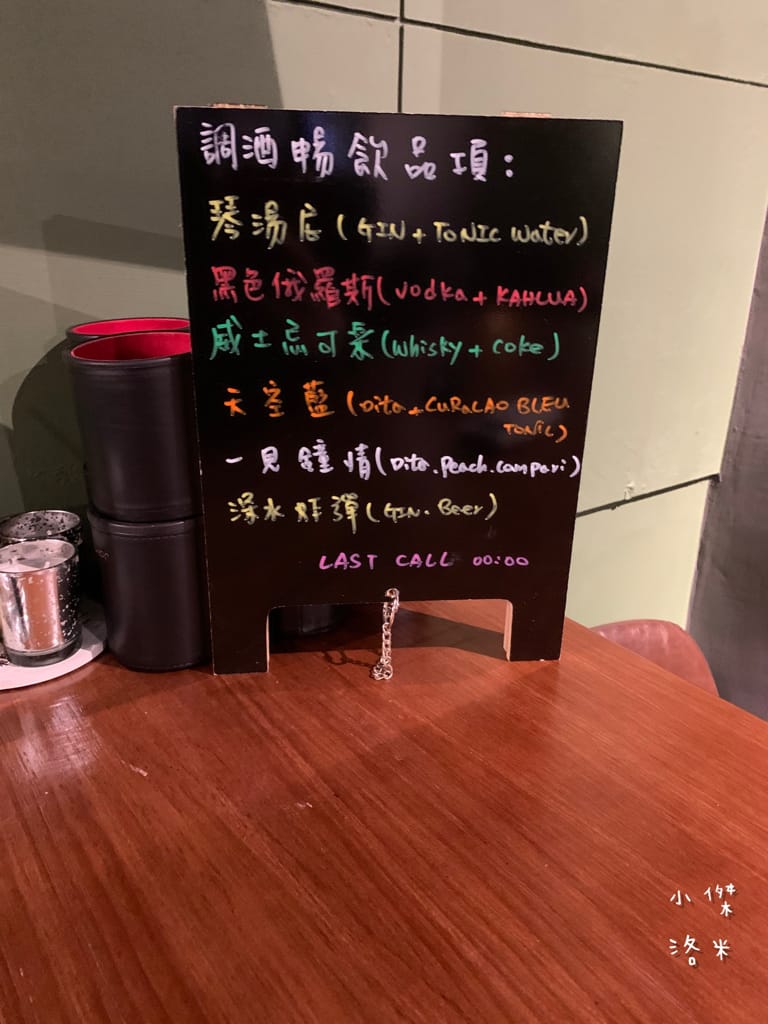 調酒暢飲品項:
琴湯尼(GIN+TONIC Water)
黑色俄羅斯(Vodka+KAHLUA)
威士忌可樂(Whisky+Coke)
天空藍(Dita+CURaCAO BLEU
TONIC)
一見鐘情(Dita.Peach.Campari)
深水炸彈(GIN.Beer)
LAST CALL 00:00
小傑
洛米